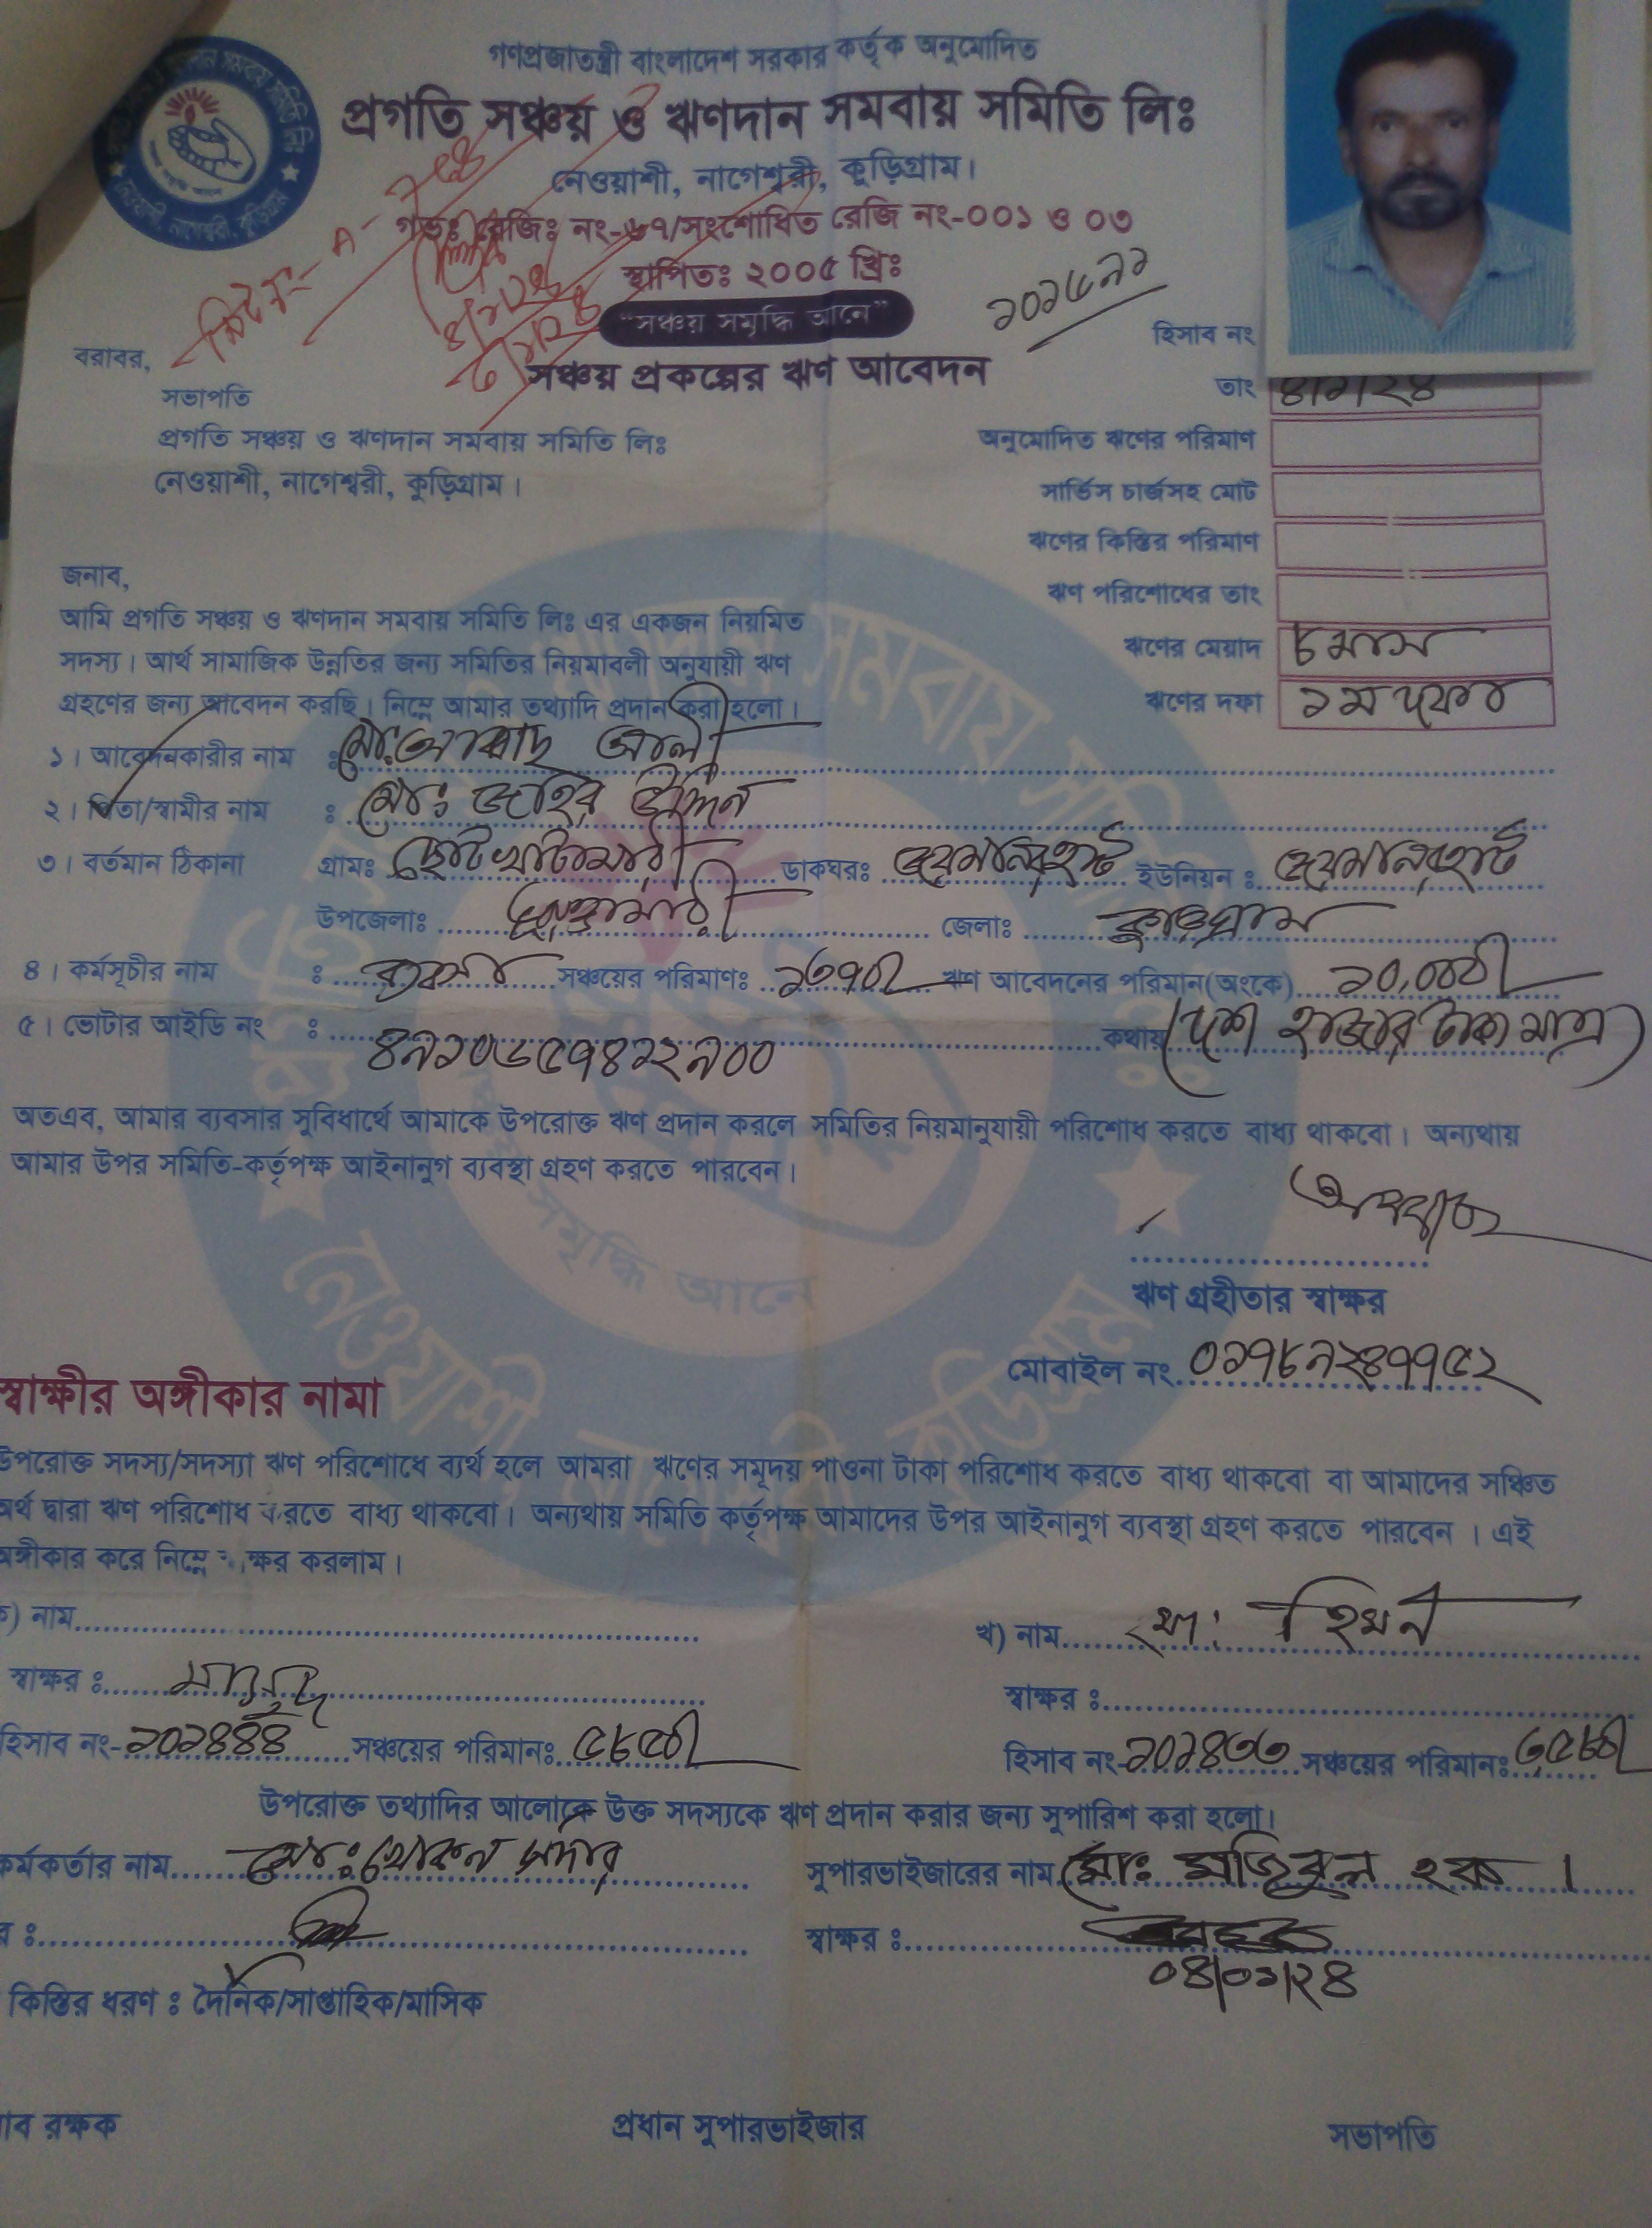 গণপ্রজাতন্ত্রী বাংলাদেশ সরকার কর্তৃক অনুমোদিত
প্রগতি সঞ্চয় ও ঋণদান সমবায় সমিতি লিঃ
নেওয়াশী, নাগেশ্বরী, কুড়িগ্রাম।
গভঃ রেজিঃ নং-৬৭/সংশোধিত রেজি নং-০০১ ও ০৩
স্থাপিতঃ ২০০৫ খ্রিঃ
"সঞ্চয় সমৃদ্ধি আনে"
সঞ্চয় প্রকল্পের ঋণ আবেদন
হিসাব নং
১০১৫৯১
তাং ৪।১।২৪
অনুমোদিত ঋণের পরিমাণ
সার্ভিস চার্জসহ মোট
ঋণের কিস্তির পরিমাণ
ঋণ পরিশোধের তাং
ঋণের মেয়াদ ৮ মাস
ঋণের দফা ১ম দফা
বরাবর,
সভাপতি
প্রগতি সঞ্চয় ও ঋণদান সমবায় সমিতি লিঃ
নেওয়াশী, নাগেশ্বরী, কুড়িগ্রাম।
জনাব,
আমি প্রগতি সঞ্চয় ও ঋণদান সমবায় সমিতি লিঃ এর একজন নিয়মিত
সদস্য। আর্থ সামাজিক উন্নতির জন্য সমিতির নিয়মাবলী অনুযায়ী ঋণ
গ্রহণের জন্য আবেদন করছি। নিম্নে আমার তথ্যাদি প্রদান করা হলো।
১। আবেদনকারীর নাম : মোঃ আব্বাছ আলী
২। পিতা/স্বামীর নাম : মোঃ জহির উদ্দিন
৩। বর্তমান ঠিকানা গ্রামঃ ছোটখাটামারী ডাকঘরঃ জয়মনিরহাট ইউনিয়ন : জয়মনিরহাট
উপজেলাঃ ভূরুঙ্গামারী জেলাঃ কুড়িগ্রাম
৪। কর্মসূচীর নাম : ব্যবসা সঞ্চয়ের পরিমাণঃ ১৩৭০/- ঋণ আবেদনের পরিমান(অংকে) ১০,০০০/-
৫। ভোটার আইডি নং : ৪৯১০৬৫৭৪১২৯০০ কথায় (দশ হাজার টাকা মাত্র)
অতএব, আমার ব্যবসার সুবিধার্থে আমাকে উপরোক্ত ঋণ প্রদান করলে সমিতির নিয়মানুযায়ী পরিশোধ করতে বাধ্য থাকবো। অন্যথায়
আমার উপর সমিতি-কর্তৃপক্ষ আইনানুগ ব্যবস্থা গ্রহণ করতে পারবেন।
ঋণ গ্রহীতার স্বাক্ষর
মোবাইল নং ০১৭৮৯২৪৭৭৫২
স্বাক্ষীর অঙ্গীকার নামা
উপরোক্ত সদস্য/সদস্যা ঋণ পরিশোধে ব্যর্থ হলে আমরা ঋণের সমূদয় পাওনা টাকা পরিশোধ করতে বাধ্য থাকবো বা আমাদের সঞ্চিত
অর্থ দ্বারা ঋণ পরিশোধ করতে বাধ্য থাকবো। অন্যথায় সমিতি কর্তৃপক্ষ আমাদের উপর আইনানুগ ব্যবস্থা গ্রহণ করতে পারবেন । এই
অঙ্গীকার করে নিম্নে স্বাক্ষর করলাম।
ক) নাম
খ) নাম মোঃ হিমন
স্বাক্ষর :
স্বাক্ষর :
হিসাব নং-১০১৪৪৪ সঞ্চয়ের পরিমানঃ ৫৮৫০/-
হিসাব নং-১০১৪৩৩ সঞ্চয়ের পরিমানঃ ৩৫৮০/-
উপরোক্ত তথ্যাদির আলোকে উক্ত সদস্যকে ঋণ প্রদান করার জন্য সুপারিশ করা হলো।
কর্মকর্তার নাম মোঃ খোকন সর্দার
সুপারভাইজারের নাম মোঃ মজিবুল হক।
র :
স্বাক্ষর :
০৪/০১/২৪
কিস্তির ধরণ : দৈনিক/সাপ্তাহিক/মাসিক
াব রক্ষক
প্রধান সুপারভাইজার
সভাপতি